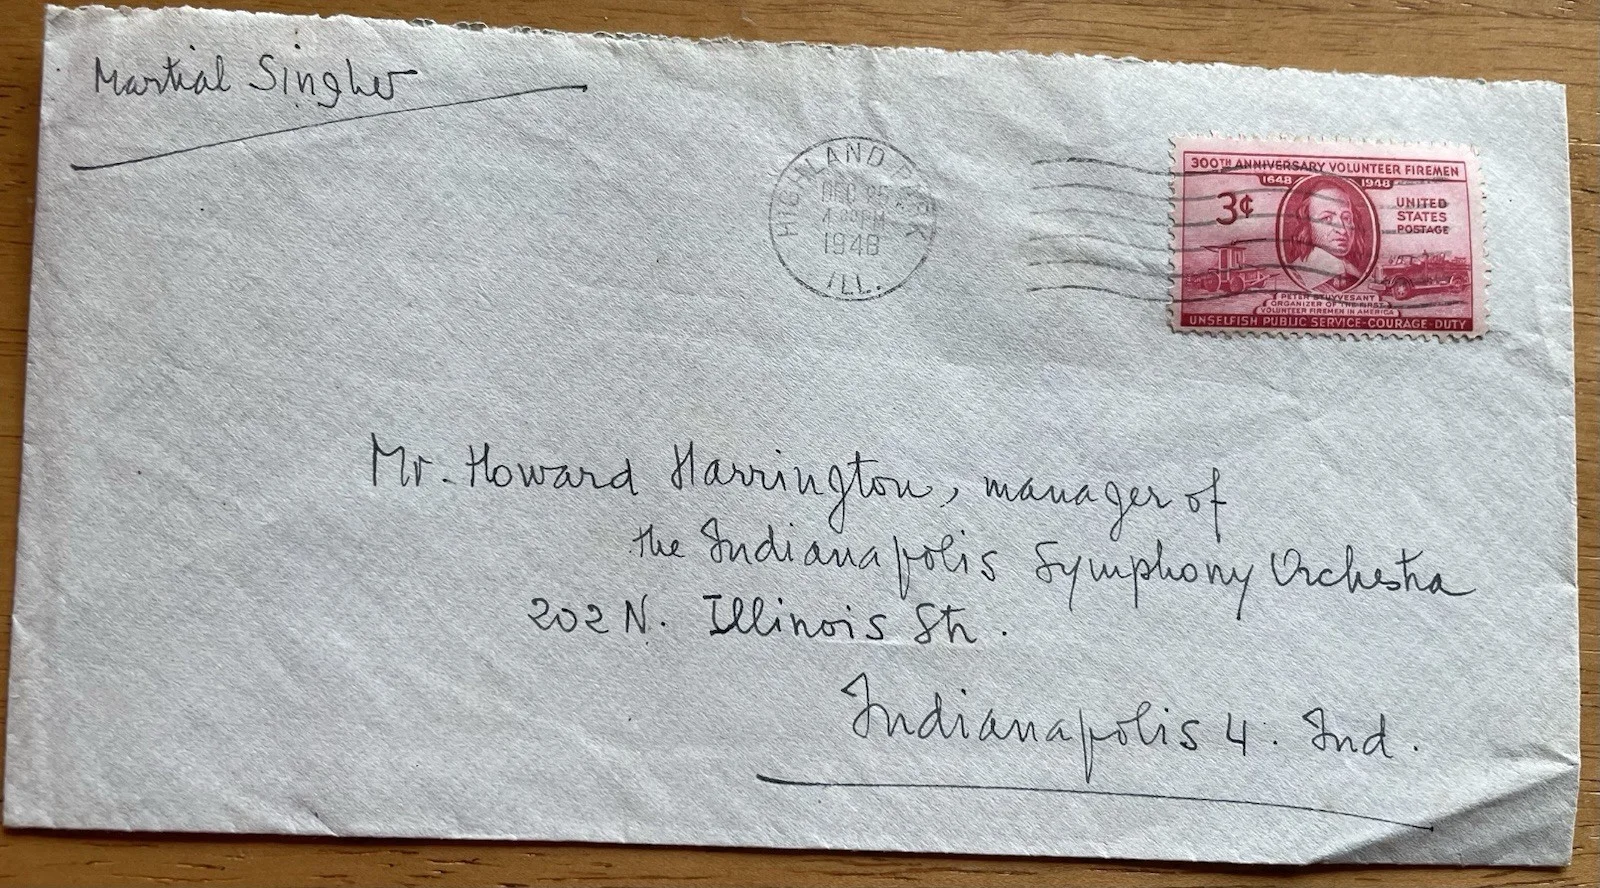 Martial Singher
HIGHLAND PARK
DEC 25
4 PM
1948
ILL.
300TH ANNIVERSARY VOLUNTEER FIREMEN
1648 1948
3¢
UNITED
STATES
POSTAGE
PETER STUYVESANT
ORGANIZER OF THE FIRST
VOLUNTEER FIREMEN IN AMERICA
UNSELFISH PUBLIC SERVICE-COURAGE-DUTY
Mr. Howard Harrington, manager of
the Indianapolis Symphony Orchestra
202 N. Illinois Str.
Indianapolis 4. Ind.